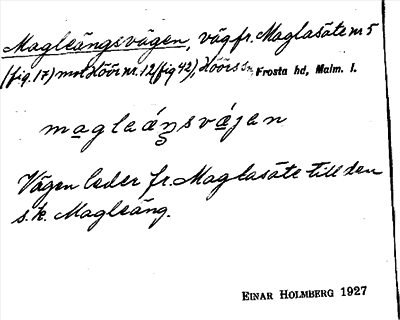 Magleängsvägen, väg fr. Maglasäte nr 5
(fig. 17) mot Höör nr. 12 (fig 42), Höörs sn, Frosta hd, Malm. l.
magleáŋsvájen
Vägen leder fr. Maglasäte till den
s.k. Magleäng.
EINAR HOLMBERG 1927